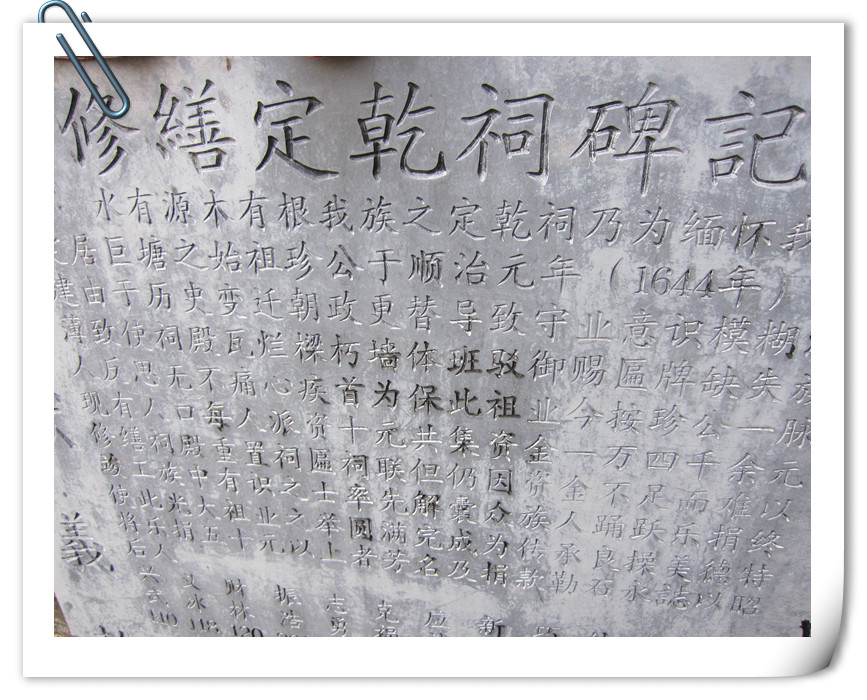 修缮定乾祠碑記
水有源木有根我族之定乾祠乃为缅怀我
居巨塘之始祖珍公于顺治元年（1644年）
建由于历史变迁朝政更替导致守业意识模糊
薄致使祠殿瓦烂樑朽墙体班驳御赐匾牌缺失
人反思无不痛心疾首为保此祖业今按珍公一脉
现有人口每人派资十元共集资金一万四千余元
修缮祠殿重置祠匾祠联但仍因资金不足而难以
竣工族中有识之士率先解囊众族人踊跃乐捐终
使此光大祖业之举圆满完成为传承良操美德特
将乐捐五十元以上者芳名及捐款勒石永誌以昭
后人
義
财林 振浩 志勇
110 118 120